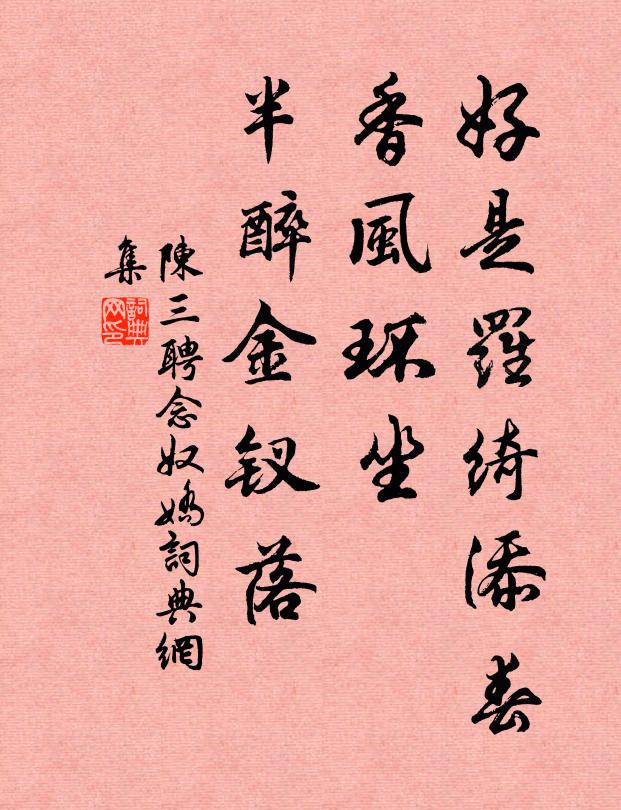 好是羅綺添春
香風环坐
半醉金钗落
陳三聘念奴嬌詞典網
集
詞典
网印